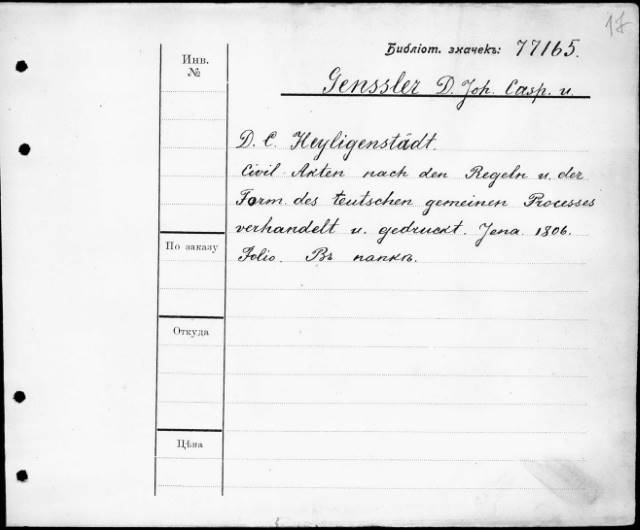 17
Библіот. значекъ: 77165.
Инв.
№
Genssler D. Joh. Casp. u.
D. C. Heyligenstädt.
Civil-Akten nach den Regeln u. der
Form des teutschen gemeinen Processes
verhandelt u. gedruckt. Jena. 1806.
По заказу
Folio. Въ папкѣ.
Откуда
Цѣна